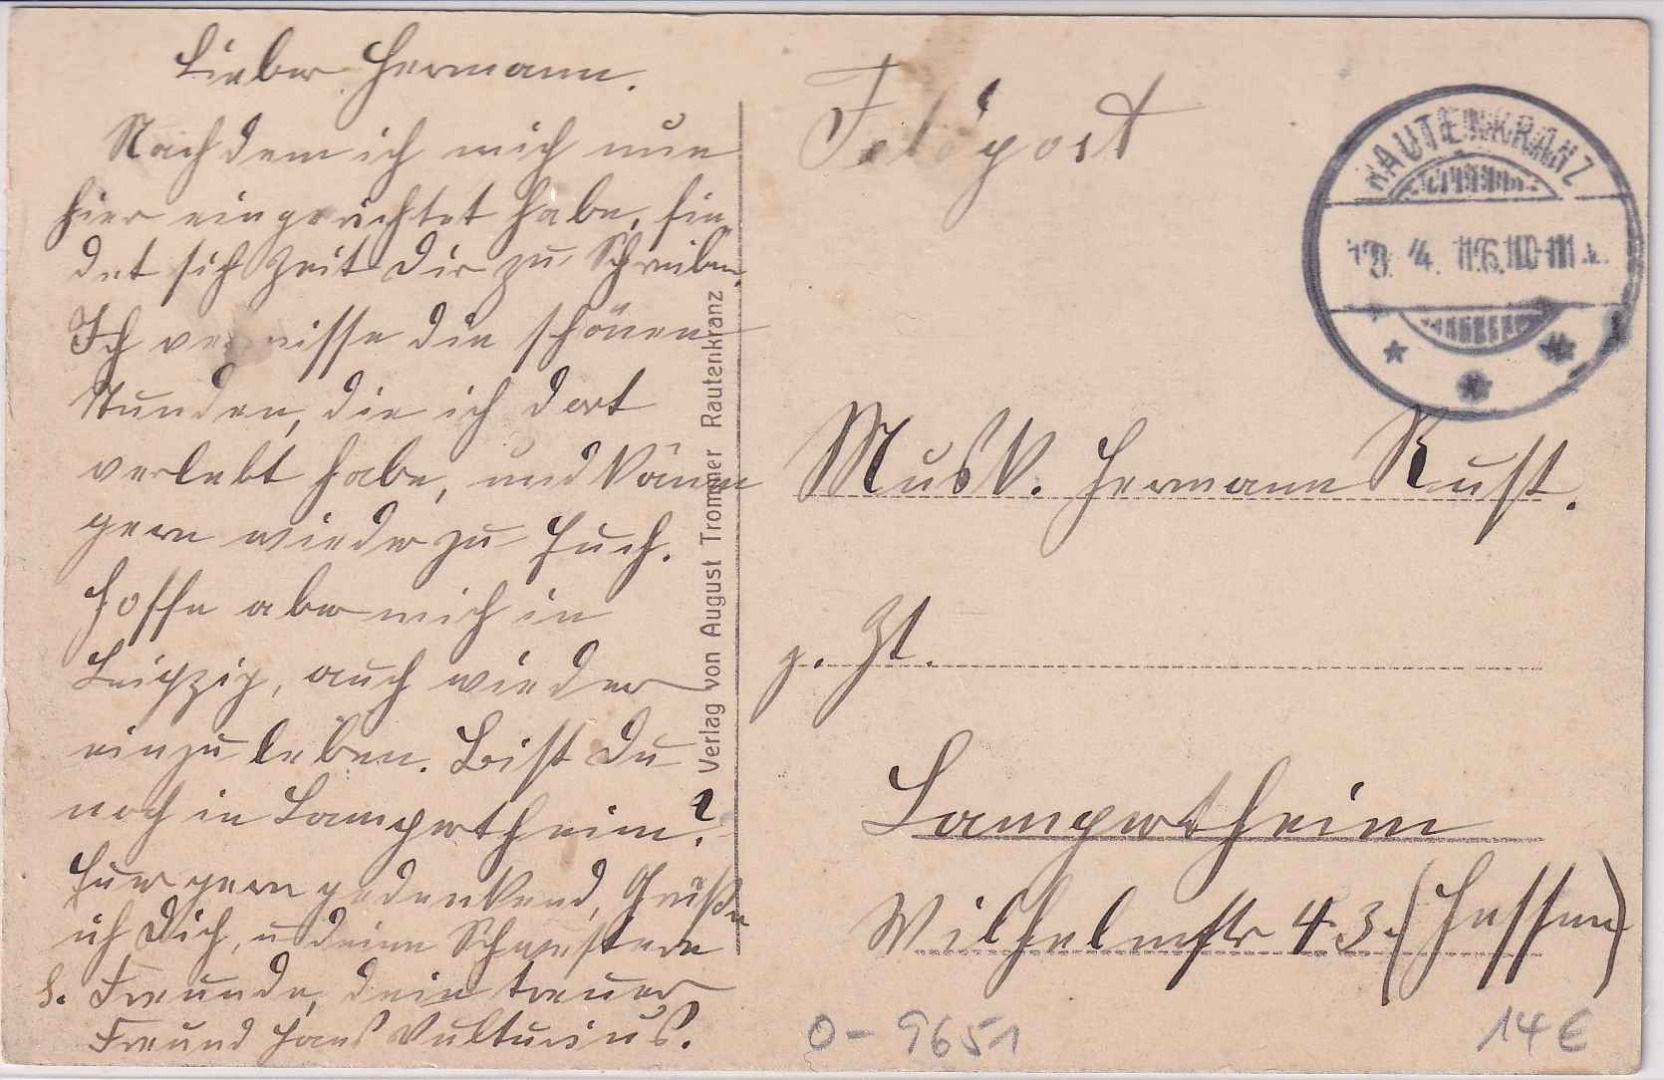 Lieber Hermann.
Nachdem ich mich nun
hier eingerichtet habe, fin
det sich Zeit Dir zu Schreiben.
Ich vermisse die schönen
Stunden, die ich dort
verlebt habe, und käme
gern wieder zu Euch.
Hoffe aber mich in
Leipzig, auch wieder
einzuleben. Bist Du
noch in Lampertheim?
Euer gern gedenkend, Grüße
ich Dich, u deine Schwestern
Freunde, dein treuer
Freund Hans Vulturius.
Verlag von August Trommer Rautenkranz
Feldpost
RAUTENKRANZ
Musk. Hermann Rust.
z. Zt.
Lampertheim
Wilhelmstr 43. (Hessen)
0-9651
14€